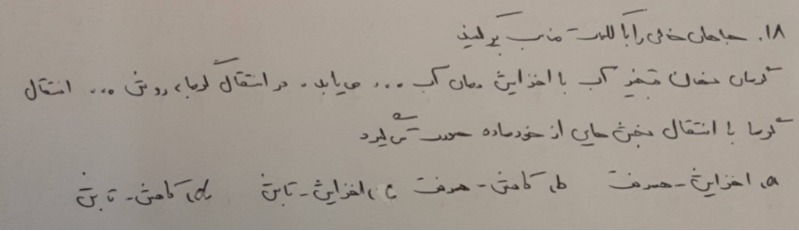 ۱۸. جاهای خالی را با کلمات مناسب پر کنید
گرمای نهان تبخیر آب با افزایش دمای آب ... می‌یابد. در انتقال گرما به روش ... انتقال
گرما با انتقال بخش‌هایی از خود ماده صورت می‌گیرد
a) افزایش - همرفت b) کاهش - همرفت c) افزایش - تابش d) کاهش - تابش